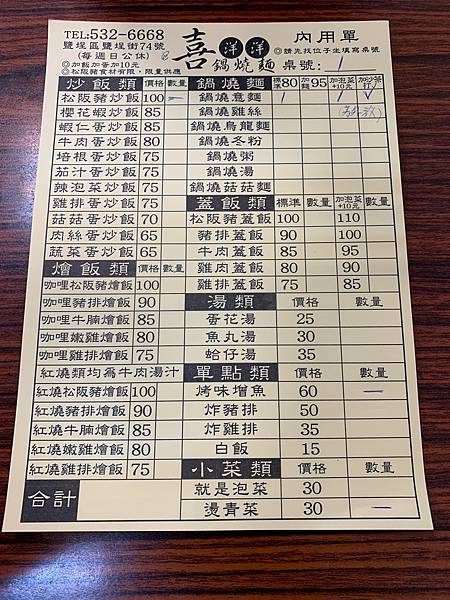 TEL:532-6668 喜 洋洋 內用單
鹽埕區鹽埕街74號 鍋燒麵 ◎請先找位子坐填寫桌號
(每週日公休) 桌號: 1
◎加飯加蛋加10元
◎松阪豬食材有限,限量供應
炒飯類 價格 數量 鍋燒麵 標準80 加麵95 加泡菜+10元 加沙茶打✓
松阪豬炒飯 100 一 鍋燒意麵 1 ✓
櫻花蝦炒飯 85 鍋燒雞絲
蝦仁蛋炒飯 85 鍋燒烏龍麵
牛肉蛋炒飯 80 鍋燒冬粉
培根蛋炒飯 75 鍋燒粥
茄汁蛋炒飯 75 鍋燒湯
辣泡菜炒飯 75 鍋燒菇菇麵
雞排蛋炒飯 75 蓋飯類 標準 數量 加泡菜+10元 數量
菇菇蛋炒飯 70 松阪豬蓋飯 100 110
肉絲蛋炒飯 65 豬排蓋飯 90 100
蔬菜蛋炒飯 65 牛肉蓋飯 85 95
燴飯類 價格 數量 雞肉蓋飯 80 90
咖哩松阪豬燴飯 100 雞排蓋飯 75 85
咖哩豬排燴飯 90 湯類 價格 數量
咖哩牛腩燴飯 85 蛋花湯 25
咖哩嫩雞燴飯 80 魚丸湯 30
咖哩雞排燴飯 75 蛤仔湯 35
紅燒類均為牛肉湯汁 單點類 價格 數量
紅燒松阪豬燴飯 100 烤味增魚 60 一
紅燒豬排燴飯 90 炸豬排 50
紅燒牛腩燴飯 85 炸雞排 35
紅燒嫩雞燴飯 80 白飯 15
紅燒雞排燴飯 75 小菜類 價格 數量
合計 就是泡菜 30
燙青菜 30 一